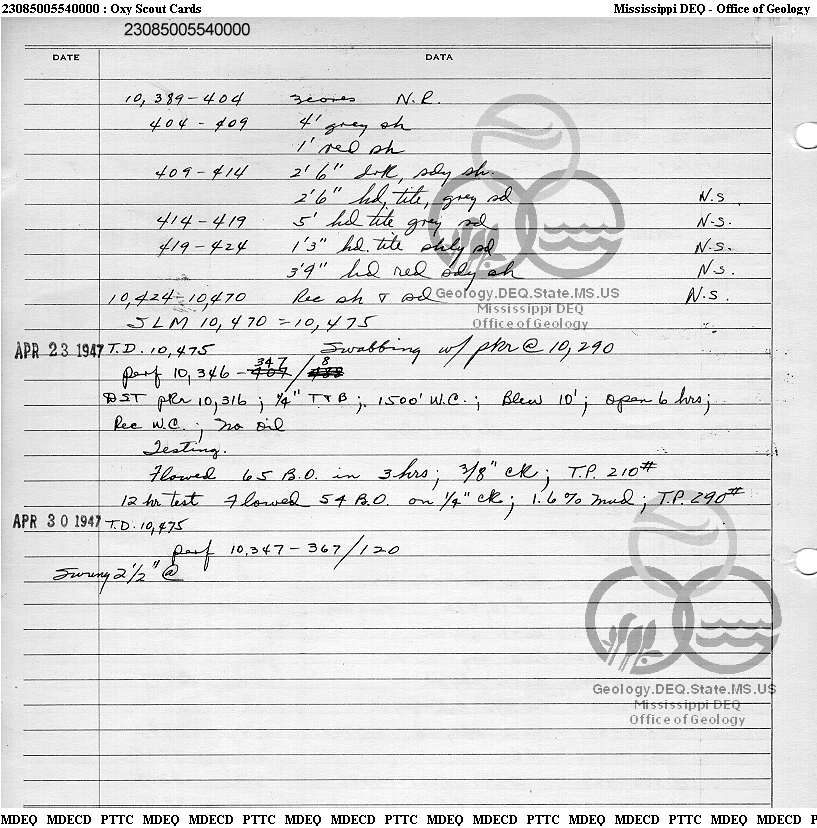 23085005540000 : Oxy Scout Cards Mississippi DEQ - Office of Geology
23085005540000
DATE DATA
10,389-404 3 cores N.R.
404-409 4' grey sh
1' red sh
409-414 2'6" drk, sdy sh.
2'6" hd, tite, grey sd N.S.
414-419 5' hd tite grey sd N.S.
419-424 1'3" hd. tite shly sd N.S.
3'9" hd red sdy sh N.S.
10,424-10,470 Rec sh & sd N.S.
Geology.DEQ.State.MS.US
Mississippi DEQ
Office of Geology
SLM 10,470 = 10,475
APR 23 1947 T.D. 10,475 Swabbing w/ pkr @ 10,290
347 8
perf 10,346-407/488
DST pkr 10,316; 1/4" T&B; 1500' W.C.; Blew 10'; open 6 hrs;
Rec W.C.; no oil
Testing.
Flowed 65 B.O. in 3 hrs; 3/8" ck; T.P. 210#
12 hr test Flowed 54 B.O. on 1/4" ck; 1.6% mud; T.P. 290#
APR 30 1947 T.D. 10,475
perf 10,347-367/120
Swung 2 1/2" @
Geology.DEQ.State.MS.US
Mississippi DEQ
Office of Geology
MDEQ MDECD PTTC MDEQ MDECD PTTC MDEQ MDECD PTTC MDEQ MDECD PTTC MDEQ MDECD PTTC MDEQ MDECD P